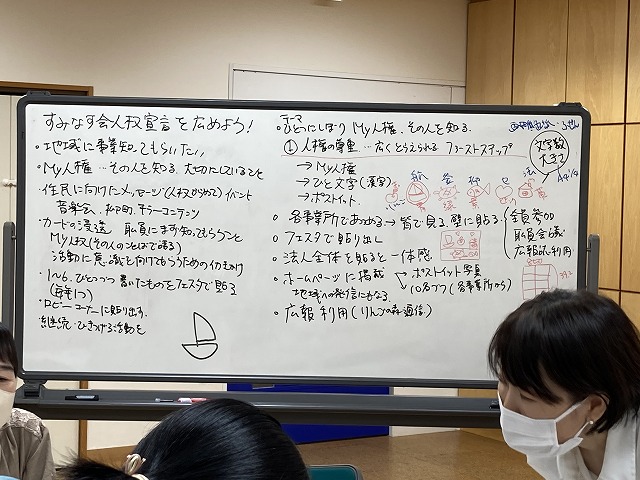 すみなす会人权宣言を広めよう!
・地域に事業知ってもらいたい
・My人権…その人を知る、大切にしていること
・住民に向けたメッセージ(人权からめて)イベント
音楽会、
・カードの浸透 職員にまず知ってもらうこと
My人权(その人のことばで語る)
活動に意識を向けてもらうための仕かけ
・1〜6、ひとつづつ書いたものをフェスタで貼る
・ロビーコーナーに貼り出す。
・継続・ひきつげる活動を
テーマ
・ひとつにしぼり My人権、その人を知る。
① 人権の尊重…広くとらえられる ファーストステップ
→ My人権
→ ひと文字(漢字)
→ ポストイット
○ 各事業所であつめる → 皆で見る、壁に貼る
○ フェスタで貼り出し
○ 法人全体を貼ると一体感
○ ホームページに掲載
地域への発信にもなる
ポストイット写真
10名づつ(各事業所から)
○ 広報 利用(りんごの森通信)
文字数
大きさ
全員参加
職員会議
広報誌利用